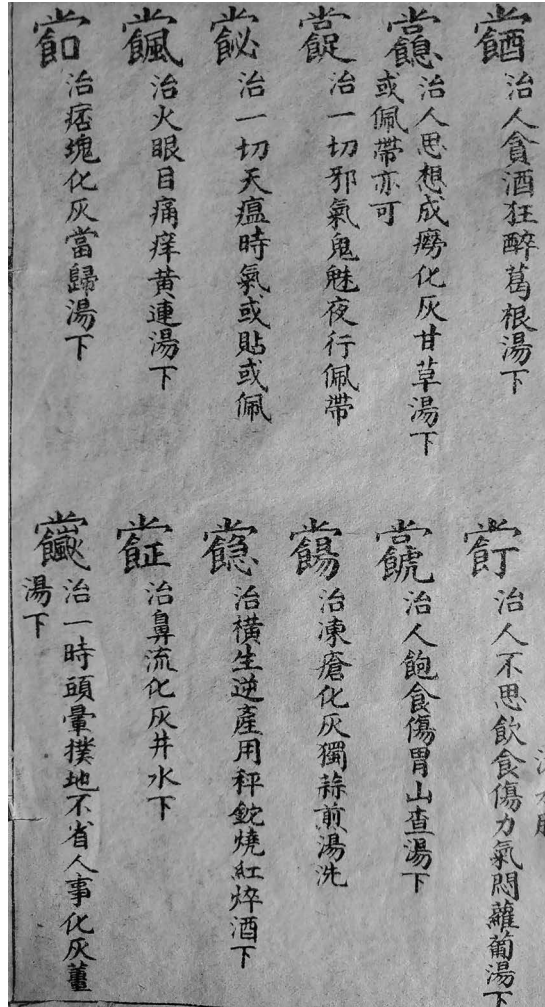 治人貪酒狂醉葛根湯下
治人思想成癆化灰甘草湯下
或佩帶亦可
治一切邪氣鬼魅夜行佩帶
治一切天瘟時氣或貼或佩
治火眼目痛痒黄連湯下
治痞塊化灰當歸湯下
治人不思飲食傷力氣悶蘿蔔湯下
治人飽食傷胃山查湯下
治凍瘡化灰獨蒜煎湯洗
治橫生逆產用秤鉈燒紅焠酒下
治鼻流化灰井水下
治一時頭暈撲地不省人事化灰薑
湯下